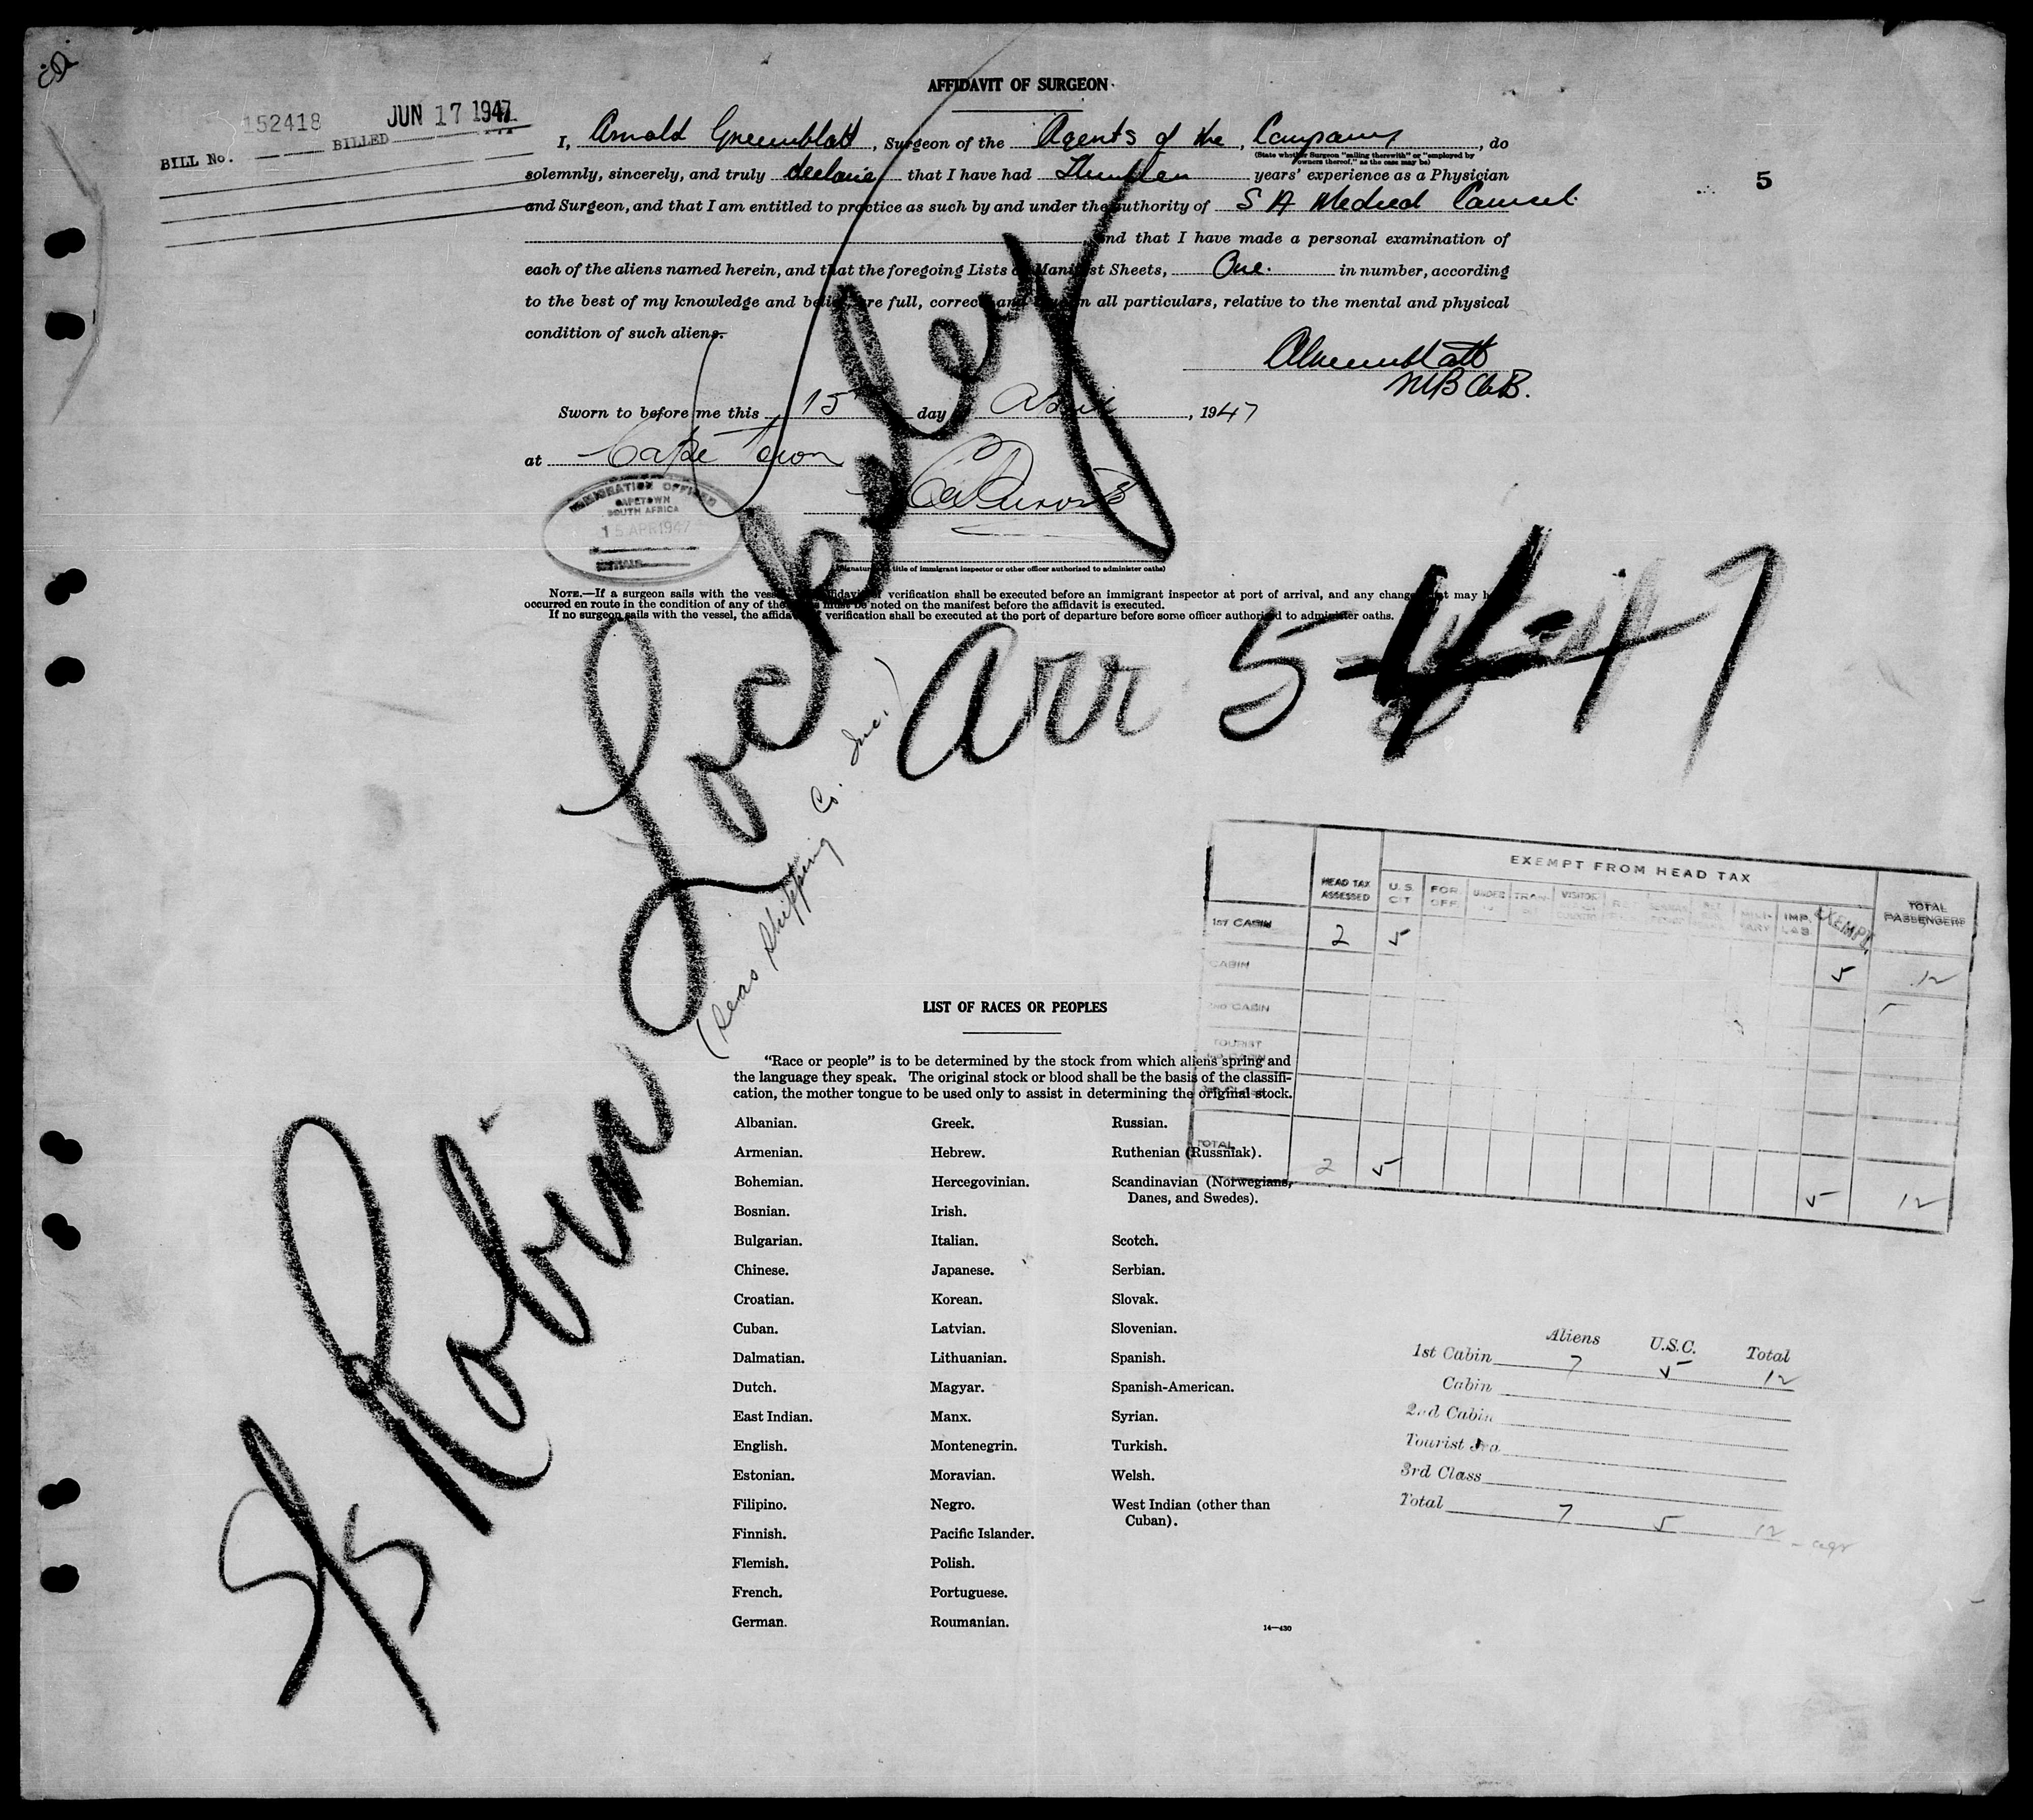 AFFIDAVIT OF SURGEON
152418 JUN 17 1947
BILL No. BILLED
5
I, Arnold Greenblatt, Surgeon of the Agents of the Company, do
(State whether Surgeon "sailing therewith" or "employed by owners thereof," as the case may be)
solemnly, sincerely, and truly declare that I have had Thirteen years' experience as a Physician
and Surgeon, and that I am entitled to practice as such by and under the authority of S A Medical Council
and that I have made a personal examination of
each of the aliens named herein, and that the foregoing Lists or Manifest Sheets, One. in number, according
to the best of my knowledge and belief, are full, correct, and true in all particulars, relative to the mental and physical
condition of such aliens.
AGreenblatt
MB ChB.
Sworn to before me this 15 day April, 1947
at Cape Town
IMMIGRATION OFFICER
CAPETOWN
SOUTH AFRICA
15 APR 1947
INITIALS
(Signature and title of immigrant inspector or other officer authorized to administer oaths)
NOTE.—If a surgeon sails with the vessel, the affidavit of verification shall be executed before an immigrant inspector at port of arrival, and any change that may h
occurred en route in the condition of any of the aliens must be noted on the manifest before the affidavit is executed.
If no surgeon sails with the vessel, the affidavit of verification shall be executed at the port of departure before some officer authorized to administer oaths.
S/S Robin Locksley
(Seas Shipping Co. Inc.)
Arr 5-
-47
EXEMPT FROM HEAD TAX
HEAD TAX ASSESSED U.S. CIT FOR. OFF. UNDER TRAN- VISITOR MILI-TARY IMP. LAB EXEMPT TOTAL PASSENGERS
1ST CABIN 2 5
CABIN 5 12
2ND CABIN
TOURIST
TOTAL 2 5 5 12
LIST OF RACES OR PEOPLES
"Race or people" is to be determined by the stock from which aliens spring and
the language they speak. The original stock or blood shall be the basis of the classifi-
cation, the mother tongue to be used only to assist in determining the original stock.
Albanian. Greek. Russian.
Armenian. Hebrew. Ruthenian (Russniak).
Bohemian. Hercegovinian. Scandinavian (Norwegians,
Danes, and Swedes).
Bosnian. Irish.
Bulgarian. Italian. Scotch.
Chinese. Japanese. Serbian.
Croatian. Korean. Slovak.
Cuban. Latvian. Slovenian.
Dalmatian. Lithuanian. Spanish.
Dutch. Magyar. Spanish-American.
East Indian. Manx. Syrian.
English. Montenegrin. Turkish.
Estonian. Moravian. Welsh.
Filipino. Negro. West Indian (other than
Cuban).
Finnish. Pacific Islander.
Flemish. Polish.
French. Portuguese.
German. Roumanian.
14—430
Aliens U.S.C. Total
1st Cabin 7 5 12
Cabin
2nd Cabin
Tourist 3rd
3rd Class
Total 7 5 12